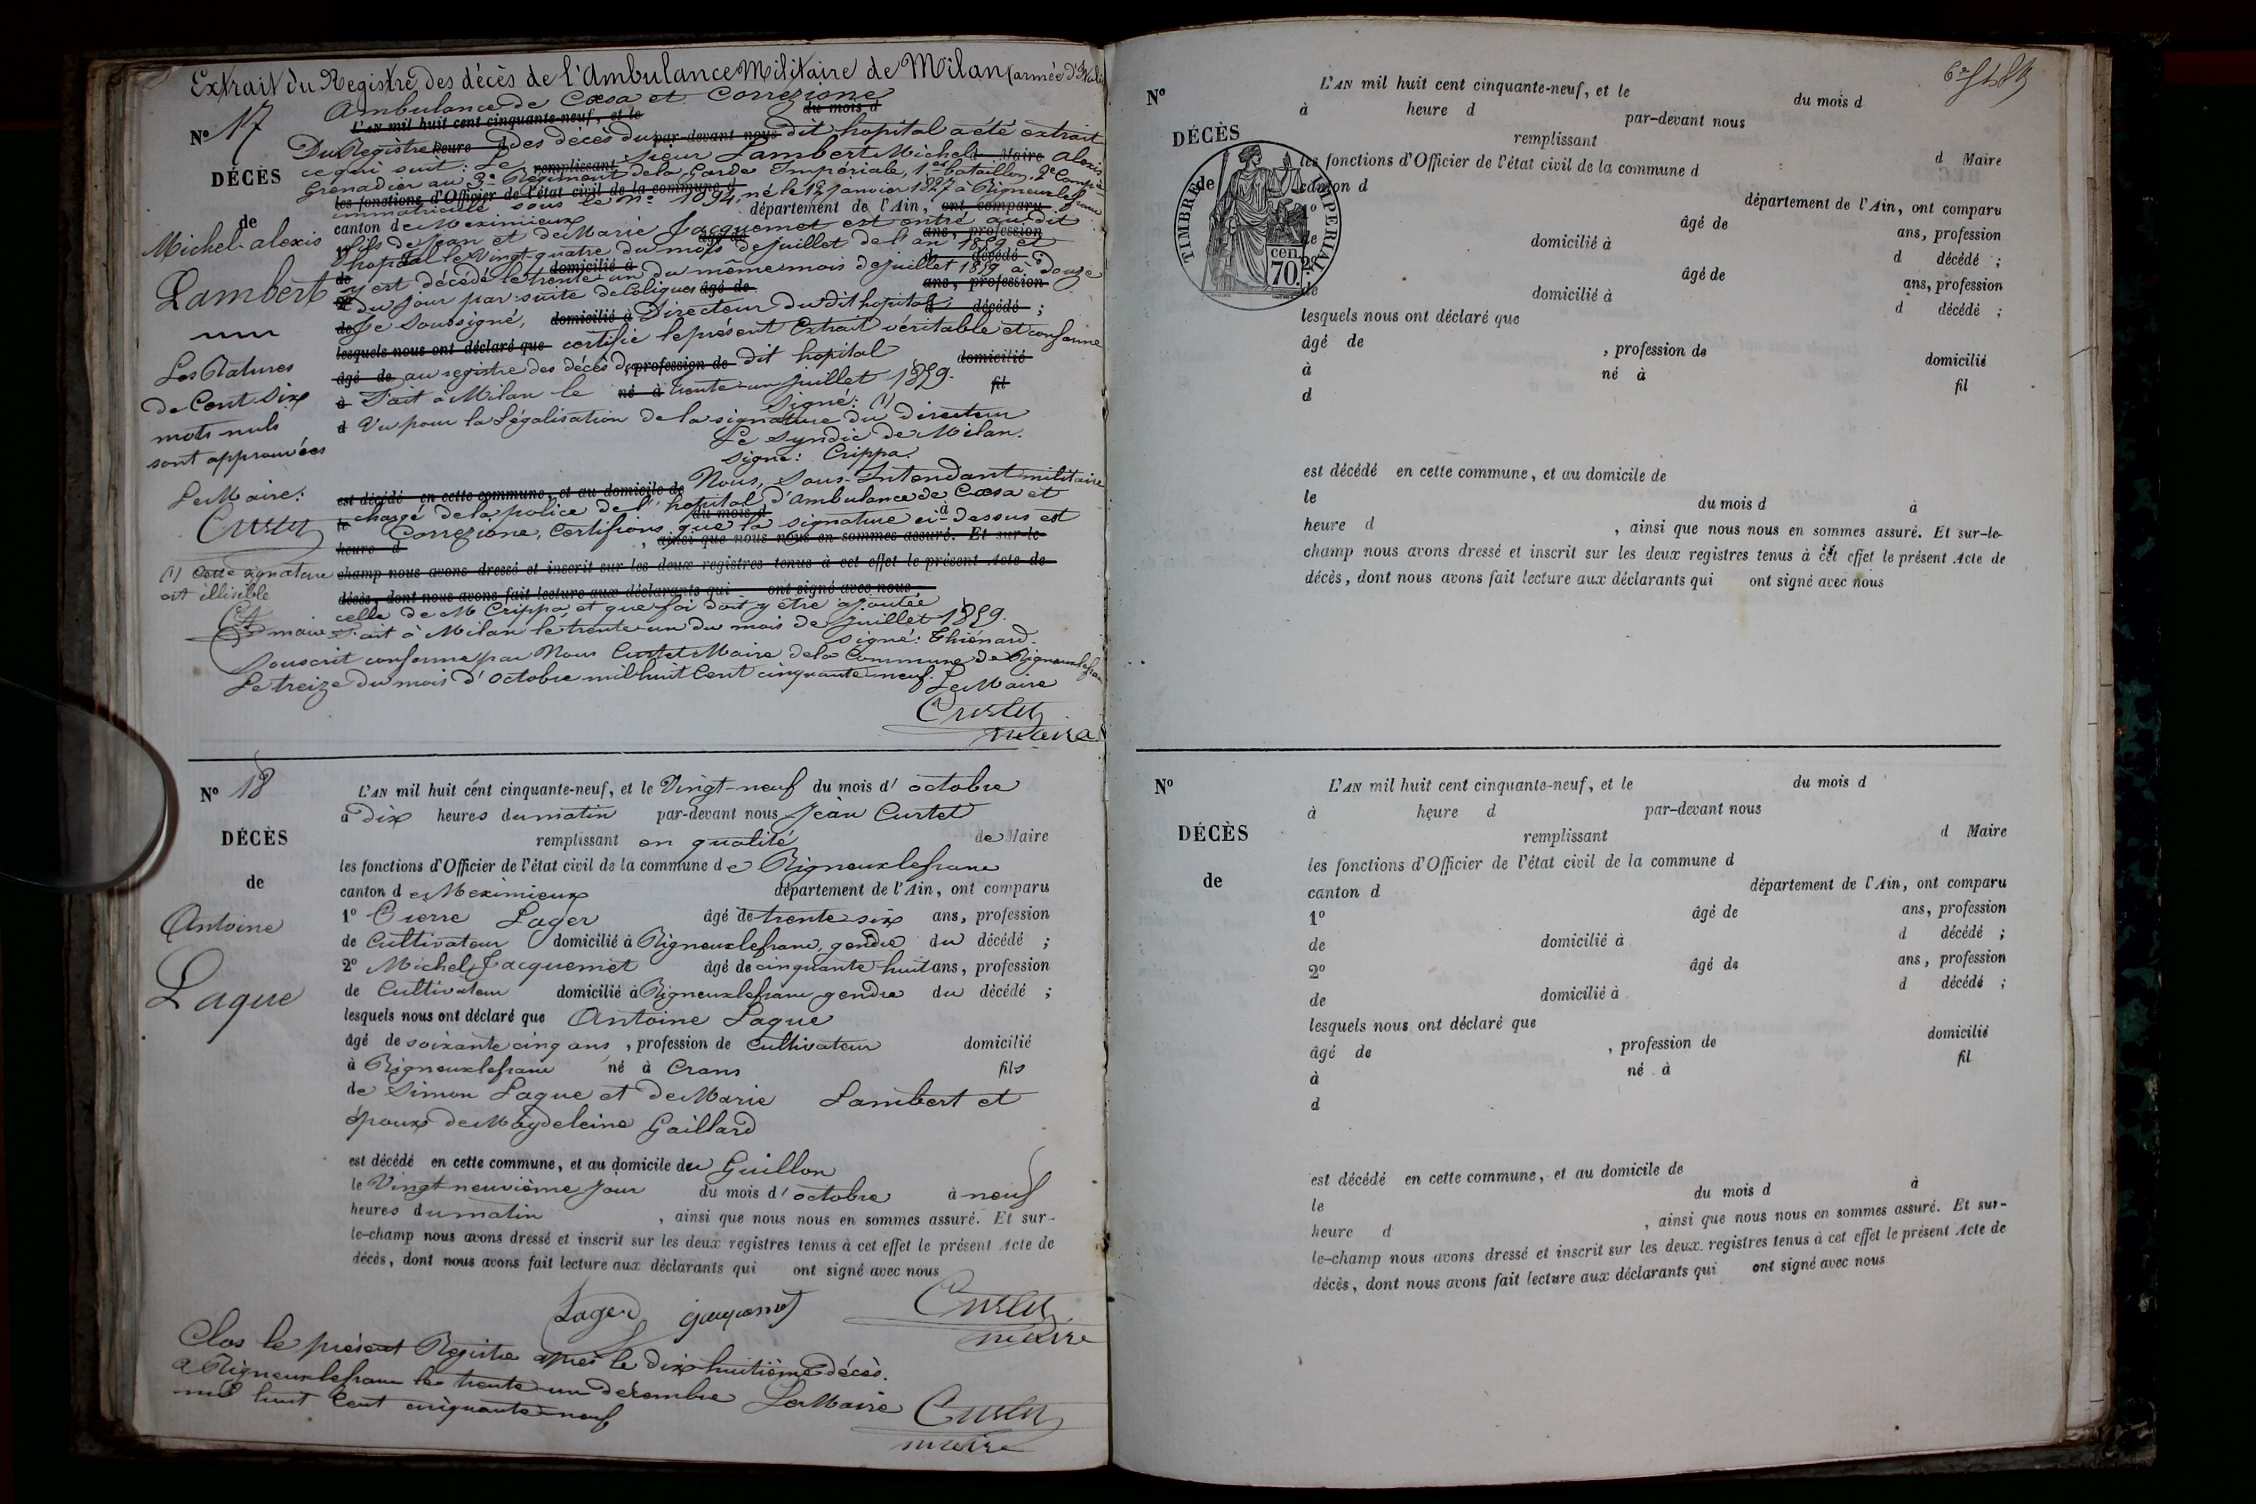 Extrait du Registre des décès de l'Ambulance Militaire de Milan (armée d'Italie
Ambulance de Casa et Correzione
L'AN mil huit cent cinquante-neuf, et le du mois d
N° 17
Du Registre heure d des décès du par-devant nous dit hopital a été extrait
ce qui suit: Le remplissant sieur Lambert Michel d Maire alexis
DÉCÈS
Grenadier au 3e Régiment de la Garde Impériale, 1er bataillon, 2e Compie
les fonctions d'Officier de l'état civil de la commune d
immatriculé sous le n° 1094, né le 12 janvier 1827 à Rigneuxlefranc
de
canton de Meximieux département de l'Ain, ont comparu
Michel-alexis
fils de Jean et de Marie Jacquemet est entré au dit
âgé de ans, profession
hopital le Vingt-quatre du mois de juillet de l'an 1859 et
de domicilié à d décédé ;
Lambert
y est décédé le trente-un du même mois de juillet 1859 à douze
2° âgé de ans, profession
du jour par suite de Coliques
de Je Soussigné, domicilié à Directeur du dit hopital d décédé ;
lesquels nous ont déclaré que certifie le présent Extrait véritable et conforme
Les Ratures
âgé de au registre des décès du profession de dit hopital domicilié
de Cent Six
à Fait à Milan le né à trente-un juillet 1859. fil
Signé: (1)
mots nuls
d Vu pour la Légalisation de la signature du directeur
sont approuvées
Le Syndic de Milan.
Signé: Crippa.
Le Maire:
Nous, Sous-Intendant militaire
est décédé en cette commune, et au domicile de
chargé de la police de l'hopital d'ambulance de Casa et
Curtet
le du mois d à
Correzione, Certifions que la signature ci-dessus est
heure d , ainsi que nous nous en sommes assuré. Et sur-le-
(1) Cette signature
champ nous avons dressé et inscrit sur les deux registres tenus à cet effet le présent Acte de
est illisible
décès, dont nous avons fait lecture aux déclarants qui ont signé avec nous
celle de M Crippa, et que foi doit y être ajoutée
maire
Fait à Milan le trente-un du mois de Juillet 1859.
Signé: Thiénard.
Souscrit conforme par Nous Curtet Maire de la Commune de Rigneuxlefranc
Le treize du mois d'octobre mil huit Cent cinquante neuf. Le Maire
Curtet
maire
N° 18
L'AN mil huit cent cinquante-neuf, et le Vingt-neuf du mois d'octobre
à Dix heures du matin par-devant nous Jean Curtet
DÉCÈS
remplissant en qualité de Maire
les fonctions d'Officier de l'état civil de la commune de Rigneuxlefranc
de
canton de Meximieux département de l'Ain, ont comparu
Antoine
1° Pierre Lager âgé de trente six ans, profession
de Cultivateur domicilié à Rigneuxlefranc, gendre du décédé ;
2° Michel Jacquemet âgé de cinquante huit ans, profession
Laque
de Cultivateur domicilié à Rigneuxlefranc gendre du décédé ;
lesquels nous ont déclaré que Antoine Laque
âgé de soixante cinq ans , profession de Cultivateur domicilié
à Rigneuxlefranc né à Crans fils
de Simon Laque et de Marie Lambert et
époux de Magdeleine Gaillard
est décédé en cette commune, et au domicile du Guillon
le Vingt neuvième jour du mois d'octobre à neuf
heures du matin , ainsi que nous nous en sommes assuré. Et sur-
le-champ nous avons dressé et inscrit sur les deux registres tenus à cet effet le présent Acte de
décès, dont nous avons fait lecture aux déclarants qui ont signé avec nous
Lager Jacquemet Curtet
maire
Clos le présent Registre après le Dix huitième décès.
a Rigneuxlefranc le trente-un décembre Le Maire
mil huit Cent cinquante-neuf
Curtet
maire
N°
L'AN mil huit cent cinquante-neuf, et le du mois d
à heure d par-devant nous
DÉCÈS
remplissant d Maire
les fonctions d'Officier de l'état civil de la commune d
de
canton d département de l'Ain, ont comparu
TIMBRE IMPERIAL
cen. 70.
1° âgé de ans, profession
de domicilié à d décédé ;
2° âgé de ans, profession
de domicilié à d décédé ;
lesquels nous ont déclaré que
âgé de , profession de domicilié
à né à fil
d
est décédé en cette commune, et au domicile de
le du mois d à
heure d , ainsi que nous nous en sommes assuré. Et sur-le-
champ nous avons dressé et inscrit sur les deux registres tenus à cet effet le présent Acte de
décès, dont nous avons fait lecture aux déclarants qui ont signé avec nous
N°
L'AN mil huit cent cinquante-neuf, et le du mois d
à heure d par-devant nous
DÉCÈS
remplissant d Maire
les fonctions d'Officier de l'état civil de la commune d
de
canton d département de l'Ain, ont comparu
1° âgé de ans, profession
de domicilié à d décédé ;
2° âgé de ans, profession
de domicilié à d décédé ;
lesquels nous ont déclaré que
âgé de , profession de domicilié
à né à fil
d
est décédé en cette commune, et au domicile de
le du mois d à
heure d , ainsi que nous nous en sommes assuré. Et sur-
le-champ nous avons dressé et inscrit sur les deux registres tenus à cet effet le présent Acte de
décès, dont nous avons fait lecture aux déclarants qui ont signé avec nous